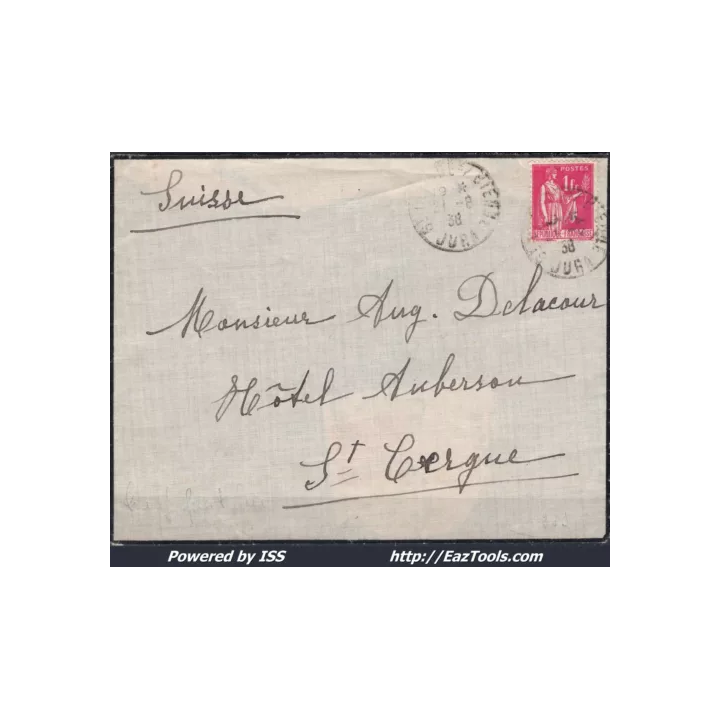 Suisse
POSTES
1F
38
JURA
38
JURA
Monsieur Aug. Delacour
Hôtel Auberson
St Cergue
Powered by ISS http://EazTools.com